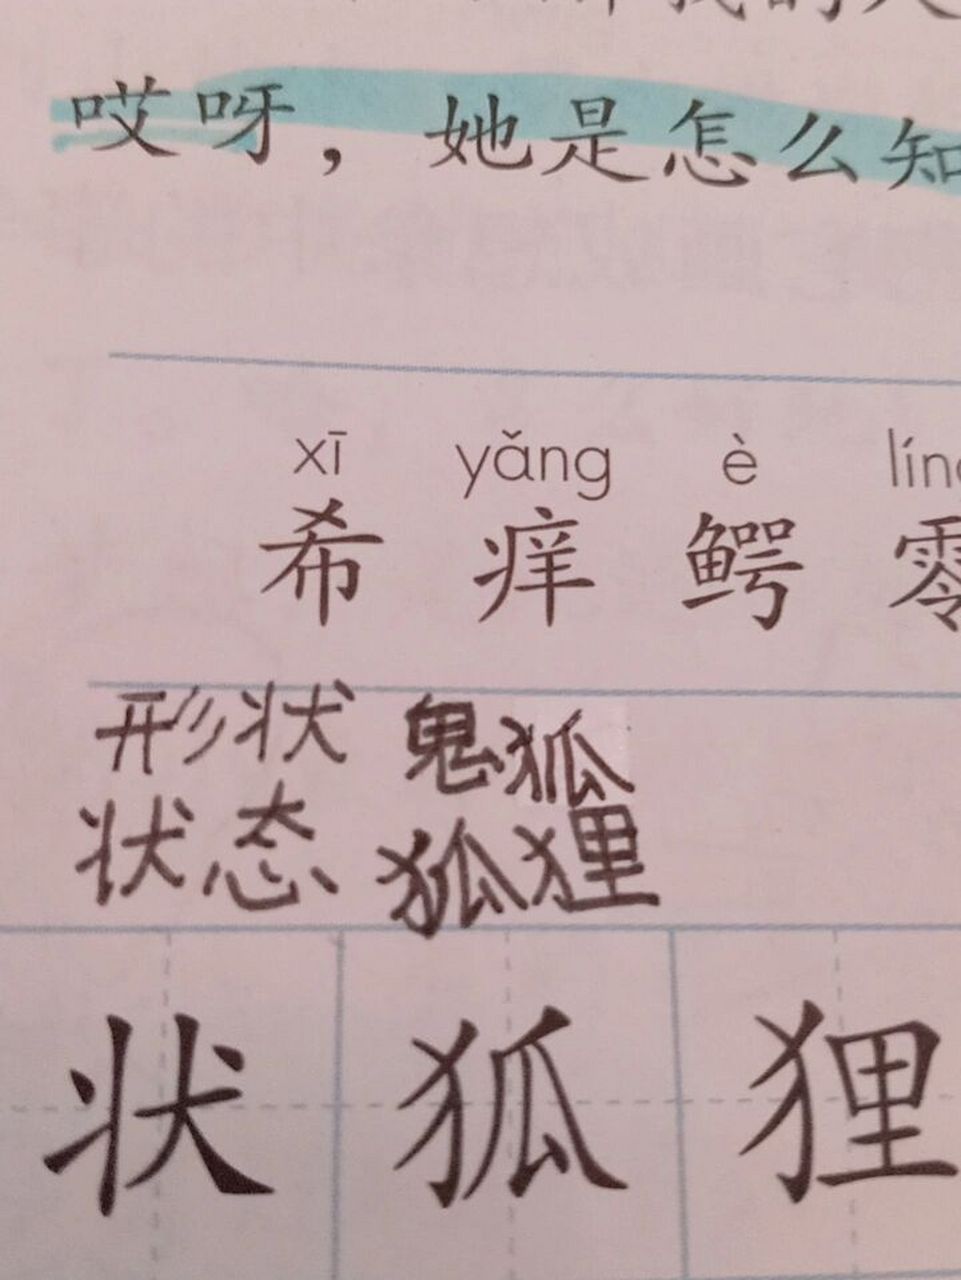 哎呀，她是怎么知
xī yǎng è
希 痒 鳄 零
形状 鬼狐
状态 狐狸
状 狐 狸